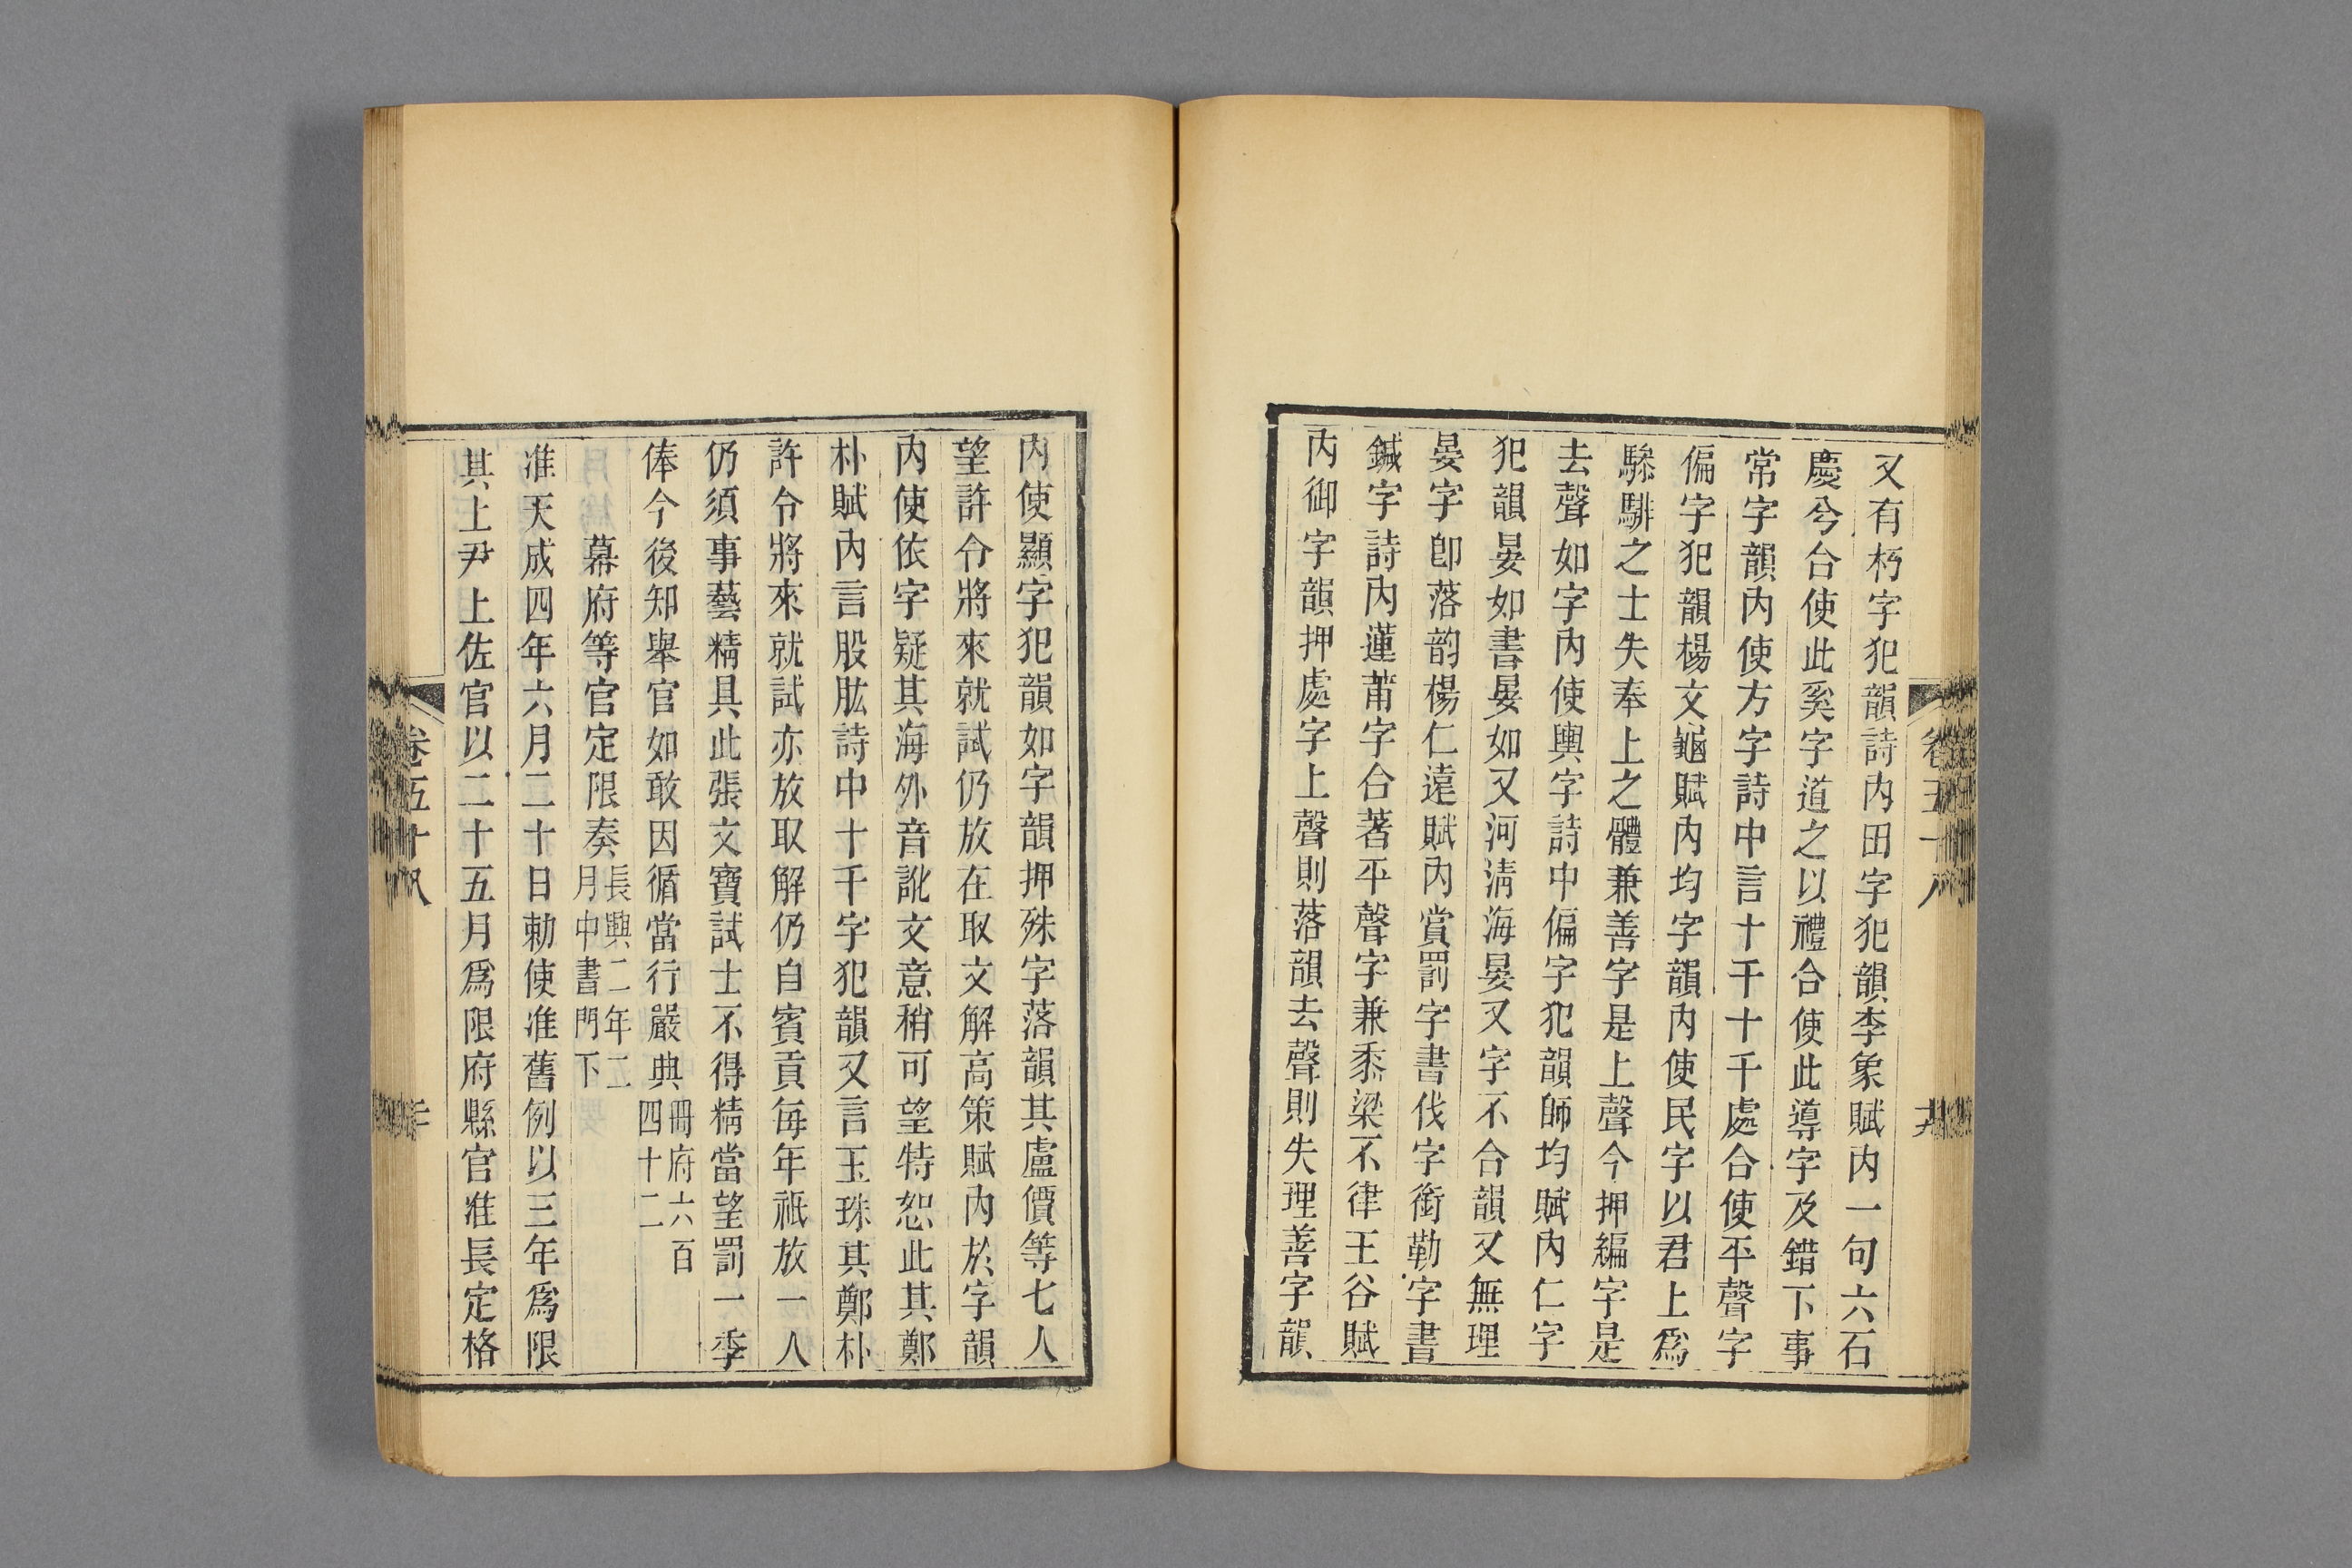 又有朽字犯韻詩內田字犯韻李象賦內一句六石
慶兮合使此奚字道之以禮合使此導字及錯下事
常字韻內使方字詩中言十千十千處合使平聲字
偏字犯韻楊文龜賦內均字韻內使民字以君上爲
驂騑之士失奉上之體兼善字是上聲今押縞字是
去聲如字內使輿字詩中偏字犯韻師均賦內仁字
犯韻晏如書晏如又河淸海晏又字不合韻又無理
晏字卽落韵楊仁遠賦內賞罰字書伐字銜勒字書
鍼字詩內蓮莆字合著平聲字兼黍梁不律王谷賦
內御字韻押處字上聲則落韻去聲則失理善字韻
內使顯字犯韻如字韻押殊字落韻其盧價等七人
望許令將來就試仍放在取文解高策賦內於字韻
內使依字疑其海外音訛文意稍可望特恕此其鄭
朴賦內言股肱詩中十千字犯韻又言玉珠其鄭朴
許令將來就試亦放取解仍自賓貢每年祇放一人
仍須事藝精具此張文寶試士不得精當望罰一季
俸今後知舉官如敢因循當行嚴典冊府六百
四十二
幕府等官定限奏長興二年二
月中書門下
准天成四年六月二十日勅使准舊例以三年爲限
其上尹上佐官以二十五月爲限府縣官准長定格
卷五十八